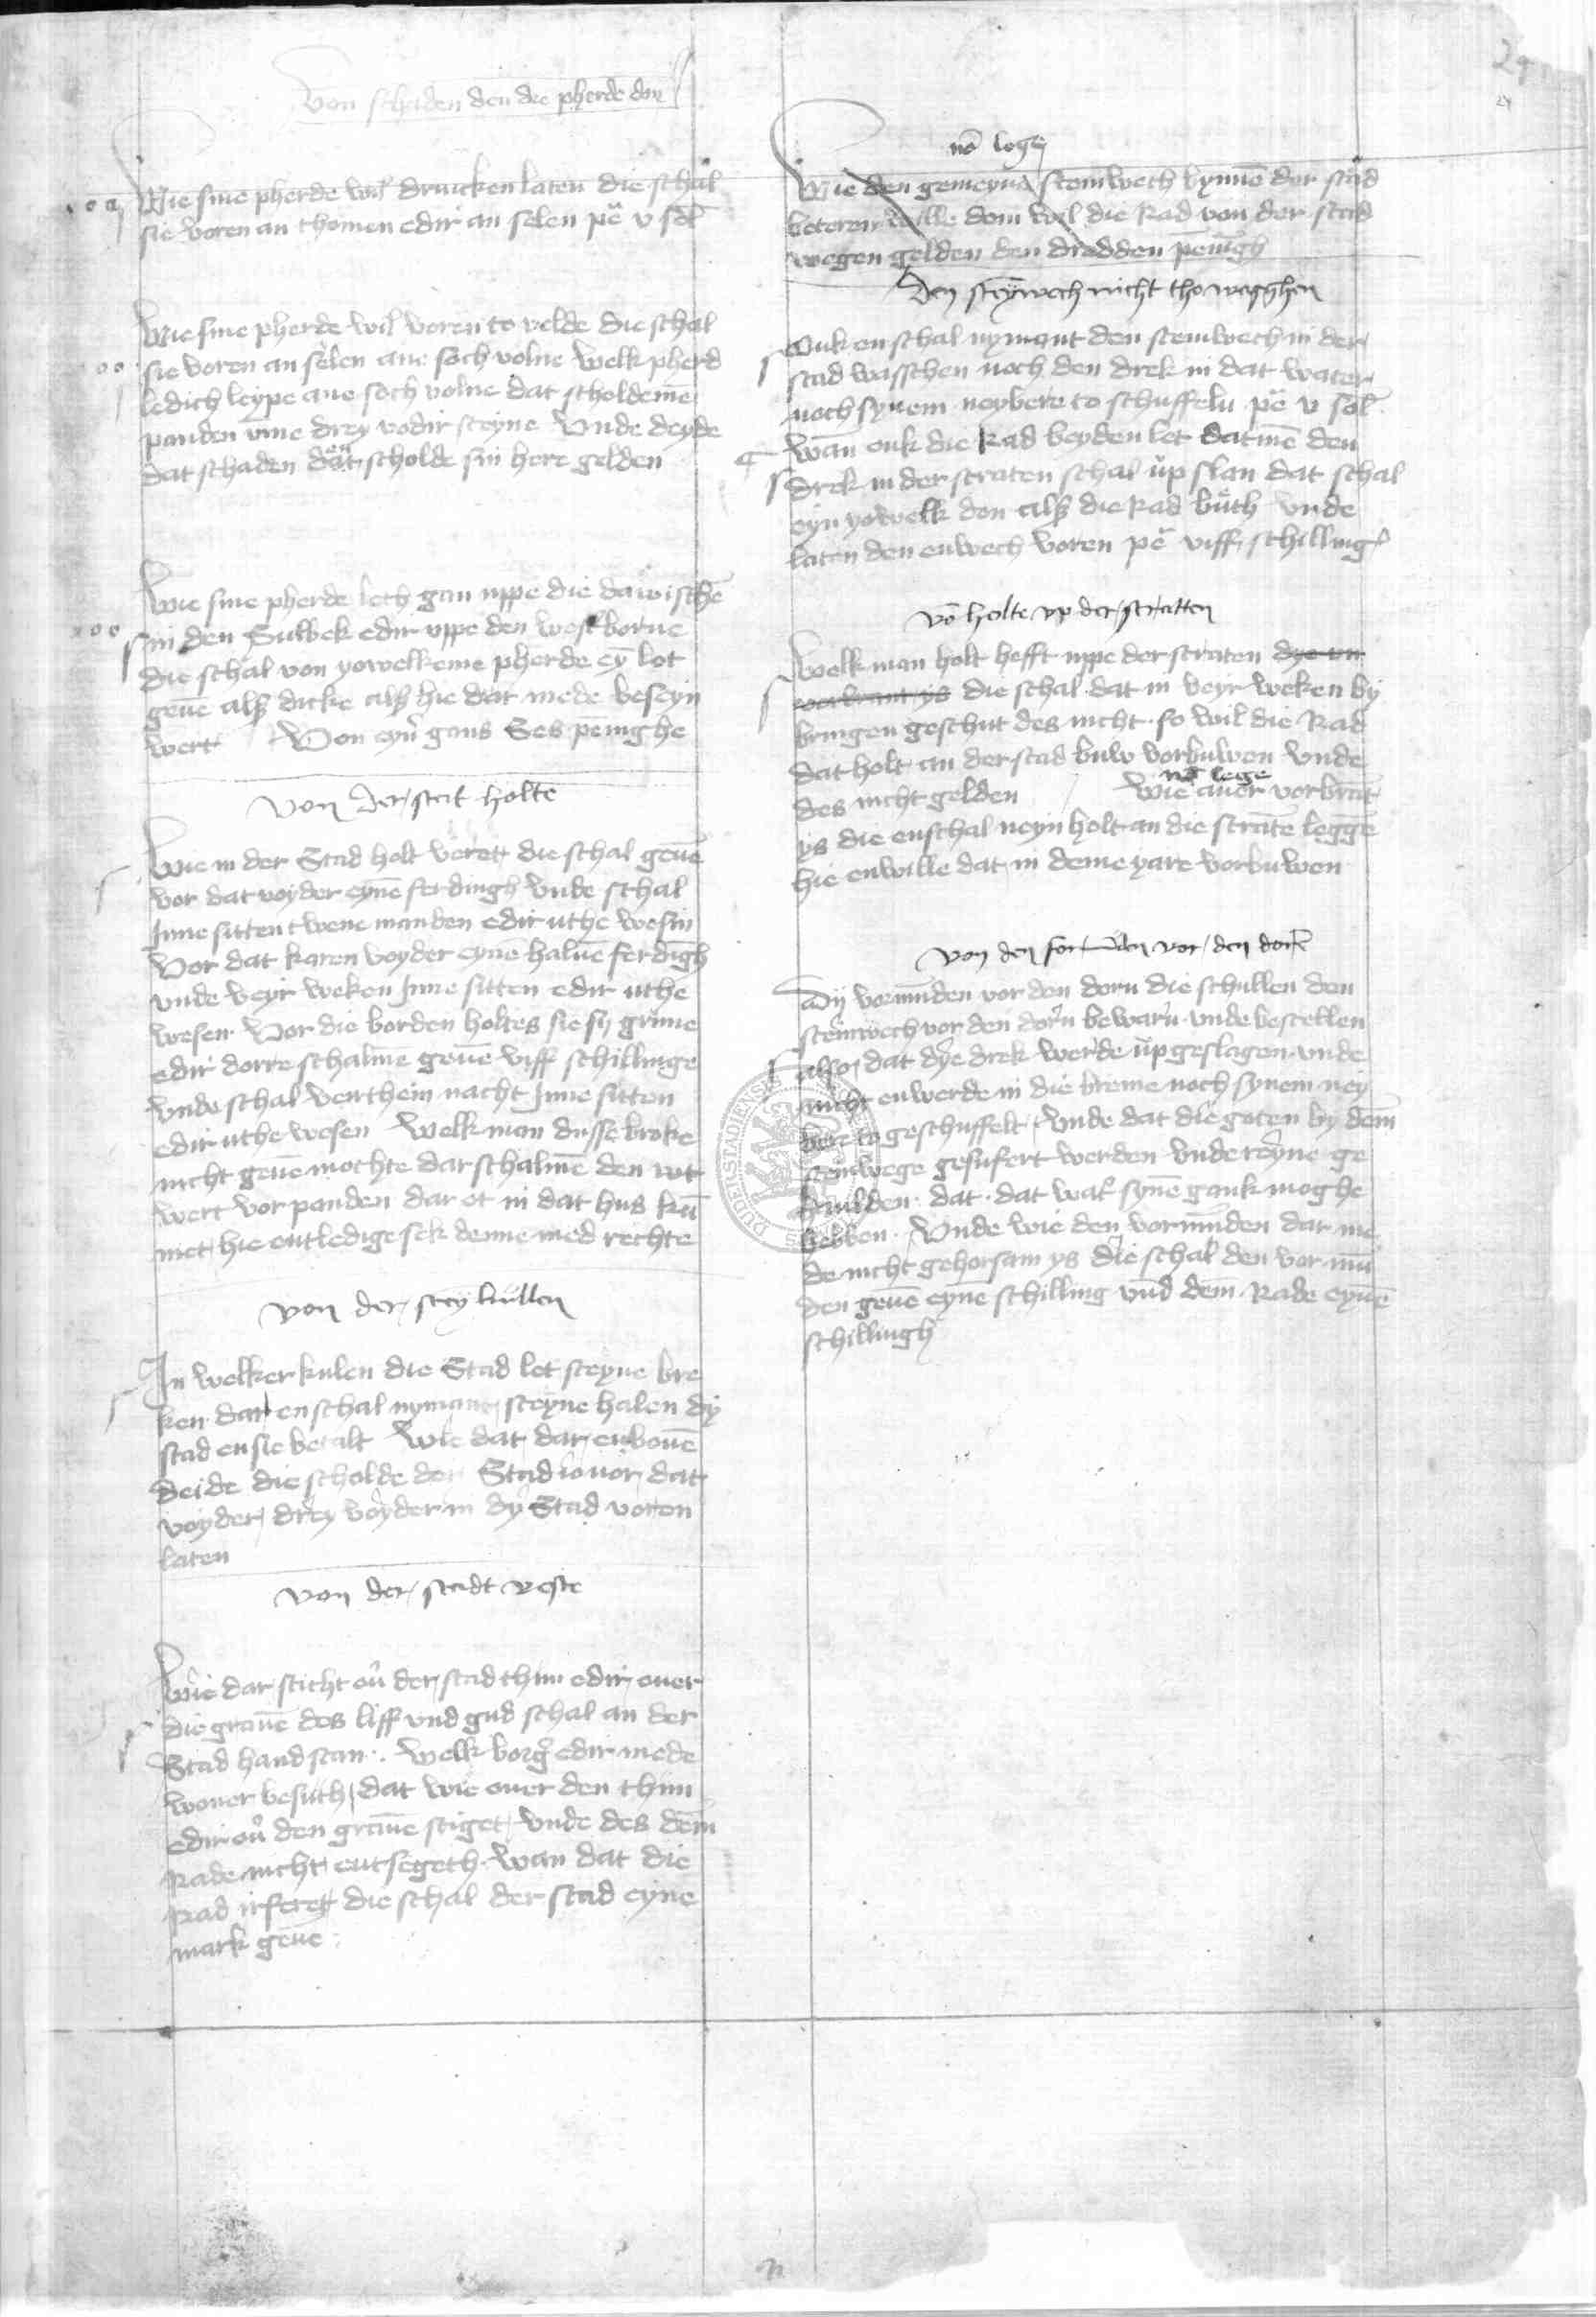 Von schaden den die pherde don
Wie sine pherde wil drincken laten die schal
sie voren an thomen edir an selen pē v sol
Wie sine pherde wil voren to velde die schal
sie voren an selen ane soch volne welk pherd
ledich leype ane soch volne dat scholdemē
panden vme drey vodir steyne Vnde deyde
dat schaden den scholde sin here gelden
Wie sine pherde leth gan uppe die wische
in den Sulbek edir uppe den westborne
die schal von yowelkeme pherde eȳ lot
geuē alß dicke alß hie dar mede beseyn
wert Von eynr gans Ses penighe
Von der stat holte
Wie in der Stad holt veret die schal geuē
vor dat voyder eynē ferdingh Vnde schal
Inne sitten twene manden edir uthe wesin
Vor dat karen voyder eyne haluē ferdigh
vnde veyr weken Inne sitten edir uthe
wesen Vor die borden holtes sie sy grūne
edir dorre schalmē geuē viff schillinge
Vnde schal verthein nacht Inne sitten
edir uthe wesen Welk man dusse broke
nicht geuē mochte dar schalmē den wt
wert vor panden dar et in dat hus kū
met hie entledige sek denne med rechte
Von der stey kullen
In welker kulen die Stad let steyne bre
ken dar en schal nymant steyne halen dy
stad en sie betalt Wie dat dar enbouē
deide die scholde der Stad vor dat
voyder drey voyder in dy Stad voren
laten
Von der stadt veste
Wie dar sticht ou der stad thun edir ouer
die grauē des liff vnd gud schal an der
Stad hand stan Welk borg edir mede
woner besuth dat wie ouer den thun
edir ou den grauē stiget Vnde des dem
Rade nicht entsegeth wan dat die
Rad irferet die schal der stad eyne
mark geue
nō loge
Wie den gemeynē steinwech bynnē der stad
beteren wille dom wil die Rad von der stad
wegen gelden den dredden penigh
Den steynwech nicht tho wasghen
Ouk en schal nymant den steinwech in der
stad wasschen noch den drek in dat water
noch synem neybere to schuffeln pē v sol
Wan ouk die Rad beyden let datmē den
drek in der straten schal up slan dat schal
eyn yowelk don alß die Rad buth vnde
laten den enwech voren pē viff schilling
Vō holte vp der stratten
Welk man holt hefft uppe der straten dye vn
vorbrant ys die schal dat in veyr weken by
bringen geschut des nicht so wil die Rad
dat holt an der stad buw vorbuwen Vnde
des nicht gelden nō lege Wie auer vorbrāt
ys die enschal neyn holt an die strate legge
hie enwille dat in deme yare vorbuwen
Von den vor den dorē
Dy vormūden vor den dorn die schullen den
steinwech vor den dorn bewarn vnde bestellen
also dat dye drek werde up geslagen vnde
nicht enwerde in die breme noch synem ney
bere to geschuffelt Vnde dat die goten by dem
steinwege gesufert werden Vnde reyne ge
haulden dat dat wat synē gank moghe
hebben Vnde wie den vormūden dar me
de nicht gehorsam ys die schal den vor mū
den geuē eynē schilling vnd dem Rade eynē
schillingh